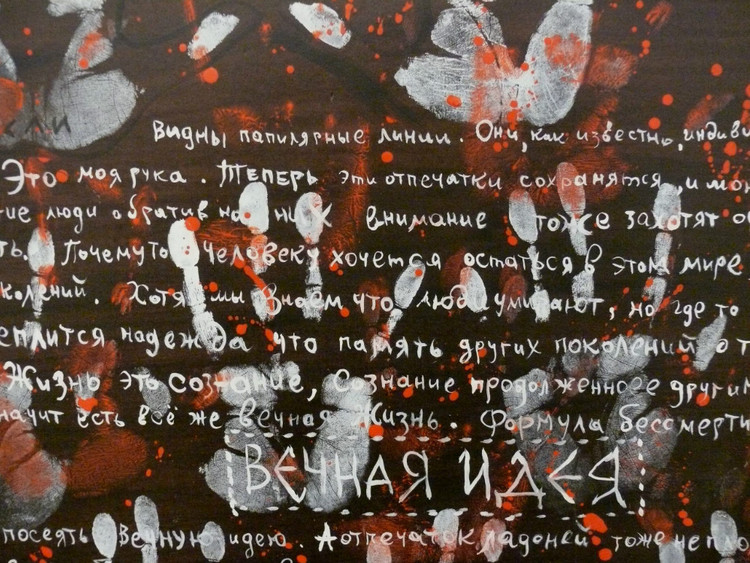 сли
Видны папилярные линии. Они, как известно, индиви
Это моя рука. Теперь эти отпечатки сохранятся, и мо
ие люди обратив на них внимание тоже захотят о
ть. Почему то человеку хочется остаться в этом мире
колений. Хотя мы знаем что люди умирают, но где то
еплится надежда что память других поколений о т
Жизнь это Сознание, Сознание продолженное други
начит есть всё же вечная Жизнь. Формула бессмерти
ВЕЧНАЯ ИДЕЯ
посеять Вечную идею. А отпечаток ладоней тоже не пло